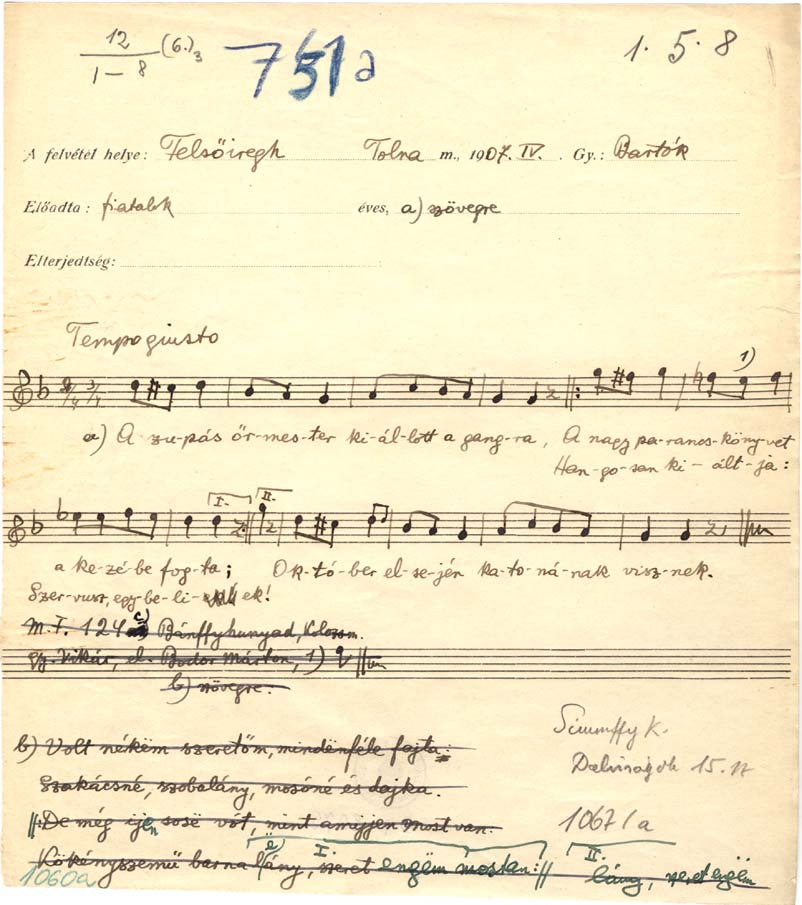 12 (6.)3
1-8
751a
1. 5. 8
A felvétel helye: Felsőiregh Tolna m., 1907. IV. Gy.: Bartók
Előadta: fiatalok éves, a) szövegre
Elterjedtség:
Tempo giusto
2/4 3/4
1)
a) A zu-pás őr-mes-ter ki-ál-lott a gang-ra, A nagy pa-rancs-köny-vet
Han-go-san ki-ált-ja:
I. II.
a ke-zé-be fog-ta; Ok-tó-ber el-se-jén ka-to-ná-nak visz-nek.
Szer-vusz, egy-be-li-ek!
M.F. 124 c) Bánffyhunyad, Kolozsm.
Gy. Vikár, el. Bodor Márton, 1)
b) szövegre.
b) Volt nékëm szeretőm, mindënféle fajta:
Szimmffy K.
Dalvirágok 15. 17
Szakácsné, szobalány, mosóné és dajka.
De még ijen sosë vót, mint amijjen most van.
1067/a
(ë) I. II.
Kökényszemű barna lány, szeret engëm mostan: lány, szeret engëm
1060a